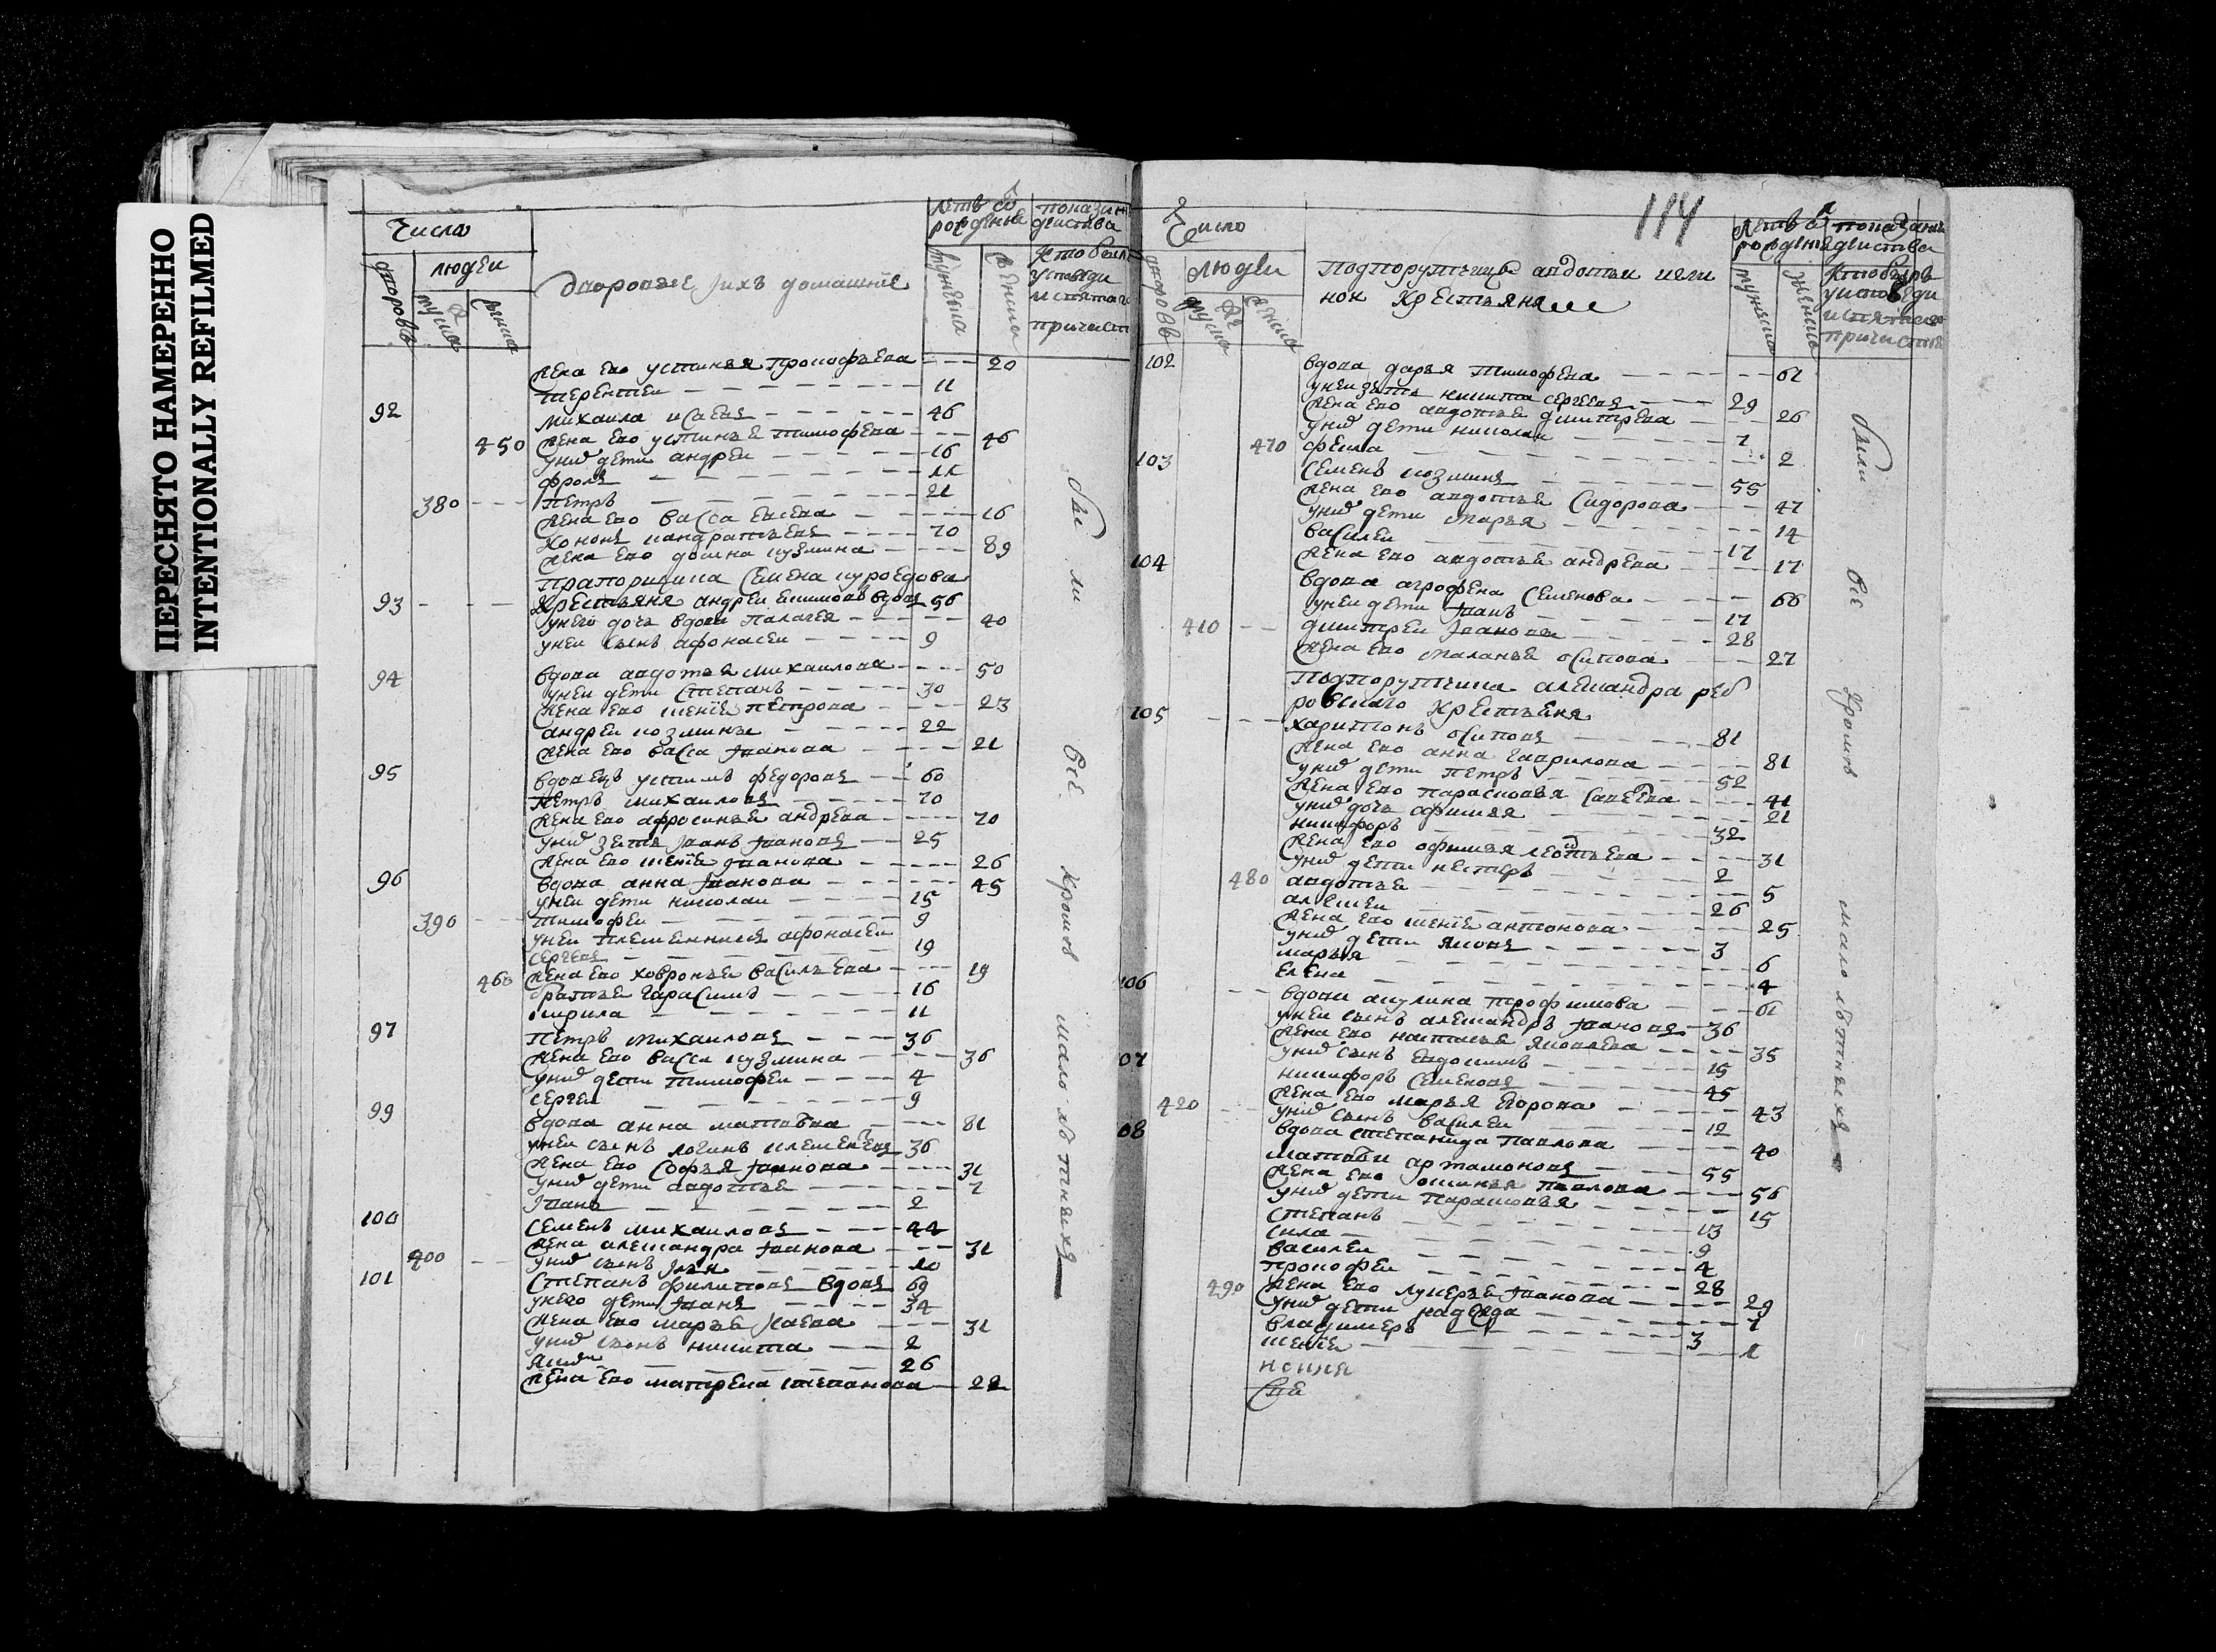 ПЕРЕСНЯТО НАМЕРЕННО
INTENTIONALLY REFILMED
Числа
людеи
дворовъ
мужеска
женска
дворовые ихъ домашние
летъ от рождения
показание действа
кто былъ у исповеди и святаго причаст
жена ево устинья прокофьева 20
терентеи 11
92 михаила исаевъ 46
450 жена ево устинья тимофева 46
у них дети андреи 16
фролъ 11
380 петръ 21
жена ево васса евсева 16
кононъ кандратьевъ 70
жена ево домна кузмина 89
прапорщика семена куроедова
93 крестьяня андреи екимовъ вдовъ 56
у него дочь вдова палагея 40
у неи сынъ афонасеи 9
94 вдова авдотья михаилова 50
у неи дети степанъ 30
жена ево петрова 23
андреи козминъ 22
жена ево васса иванова 21
95 вдовецъ устимъ федоровъ 60
петръ михаиловъ 70
жена ево афросинья андрева 70
у них зять иванъ ивановъ 25
жена ево иванова 26
96 вдова анна иванова 45
у неи дети николаи 15
390 тимофеи 9
у неи племянникъ афонасеи
сергеевъ 19
460 жена ево ховронья васильева 19
братья гарасимъ 16
кирила 11
97 петръ михаиловъ 36
жена ево васса кузмина 36
у них дети тимофеи 4
сергеи 9
99 вдова анна матвевна 81
у неи сынъ логинъ 36
жена ево софья иванова 31
у них дети авдотья 7
иванъ 2
100 семенъ михаиловъ 44
жена александра иванова 31
400 у них сынъ илья 10
101 степанъ филиповъ вдовъ 69
у него дети иванъ 34
жена ево марья исаева 31
у них сынъ никита 2
якимъ 26
жена ево матрена степанова 22
были все кроме малолетныхъ
114
Число
людеи
дворовъ
мужеска
женска
подпорутчицы авдотьи
крестьяня
летъ от рождения
показание действа
кто былъ у исповеди и святаго причастия
102 вдова дарья тимофева 61
у неи зять никита сергеевъ 29
жена ево авдотья дмитрева 26
у них дети николаи 7
470 фекла 2
103 семенъ козминъ 55
жена ево авдотья сидорова 47
у них дети марья 14
василеи 17
жена ево авдотья андрева 17
104 вдова агрофена семенова 66
у неи дети иванъ 17
410 дмитреи ивановъ 28
жена ево маланья осипова 27
подпорутчика александра реб
ровскаго крестьяня
105 харитонъ осиповъ 81
жена ево анна гаврилова 81
у них дети петръ 52
жена ево парасковья савеева 41
у них дочь афимья 21
никифоръ 32
жена ево офимья леонтьева 31
у них дети нестеръ 2
480 авдотья 5
алексеи 26
жена ево антонова 25
у них дети яковъ 3
марья 6
елена 4
106 вдова акулина трофимова 61
у неи сынъ александръ ивановъ 36
жена ево наталья яковлева 35
у них сынъ евдокимъ 15
107 никифоръ семеновъ 45
жена ево марья егорова 43
420 у них сынъ василеи 12
08 вдова степанида павлова 40
матвеи артамоновъ 55
жена ево павлова 56
у них дети парасковья 15
степанъ 13
сила 9
василеи 4
прокофеи 28
490 жена ево лукерья иванова 29
у них дети надежда 7
владимеръ 3
1
были все кроме малолетныхъ